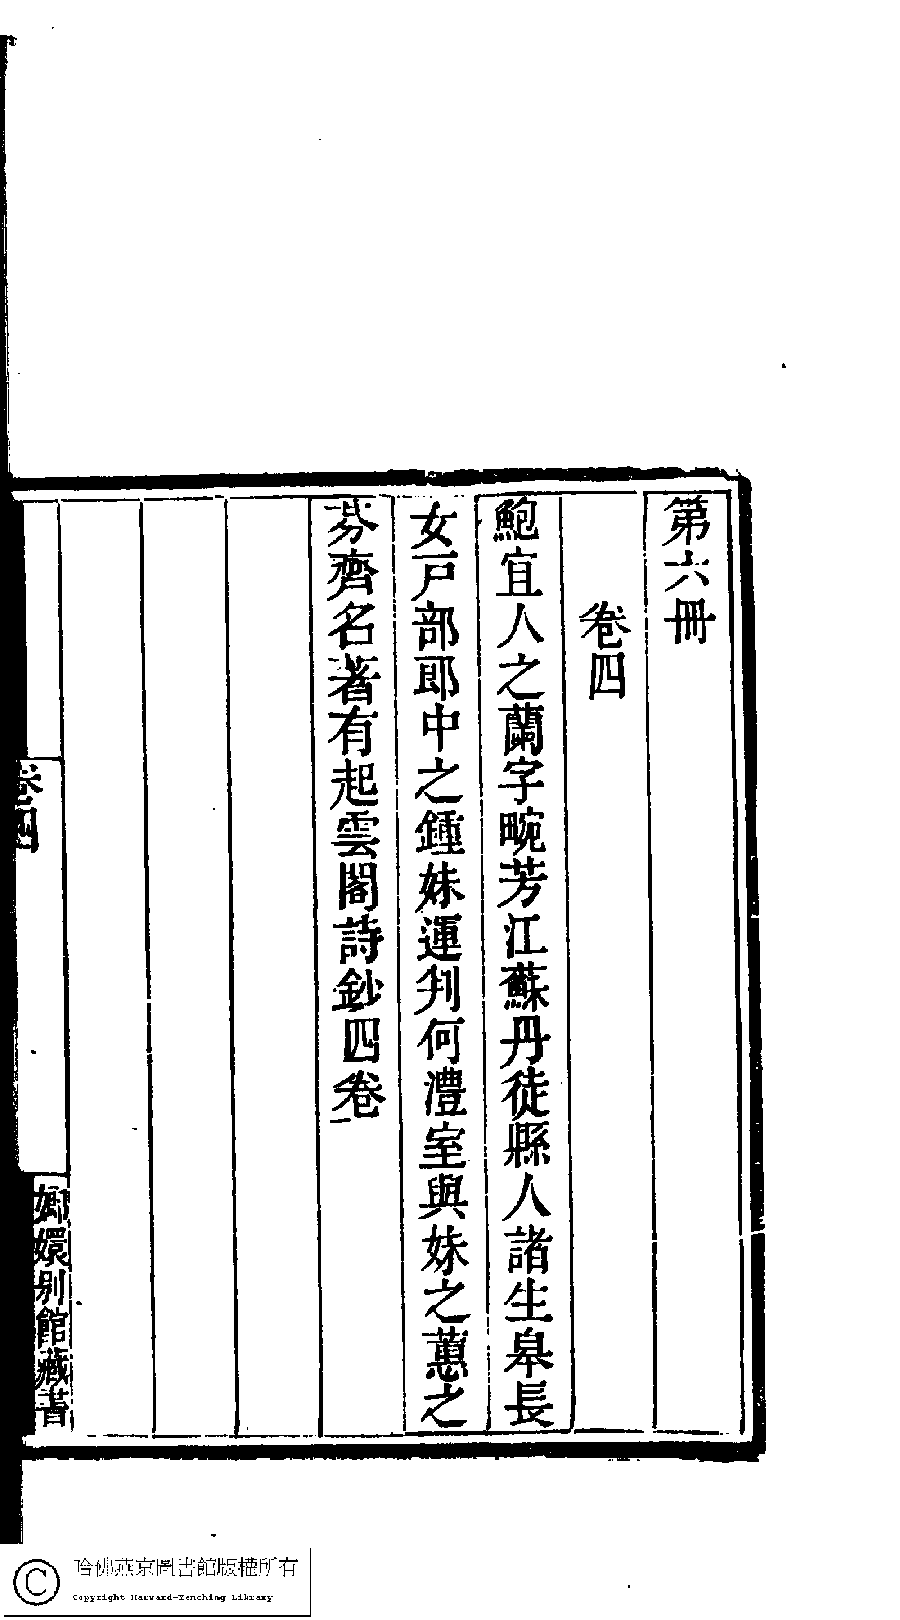 第六冊
卷四
鮑宜人之蘭字畹芳江蘇丹徒縣人諸生皋長
女戶部郎中之鍾妹運判何澧室與妹之蕙之
芬齊名著有起雲閣詩鈔四卷
卷四
嫏嬛別館藏書
哈佛燕京圖書館版權所有
Copyright Harvard-Yenching Library